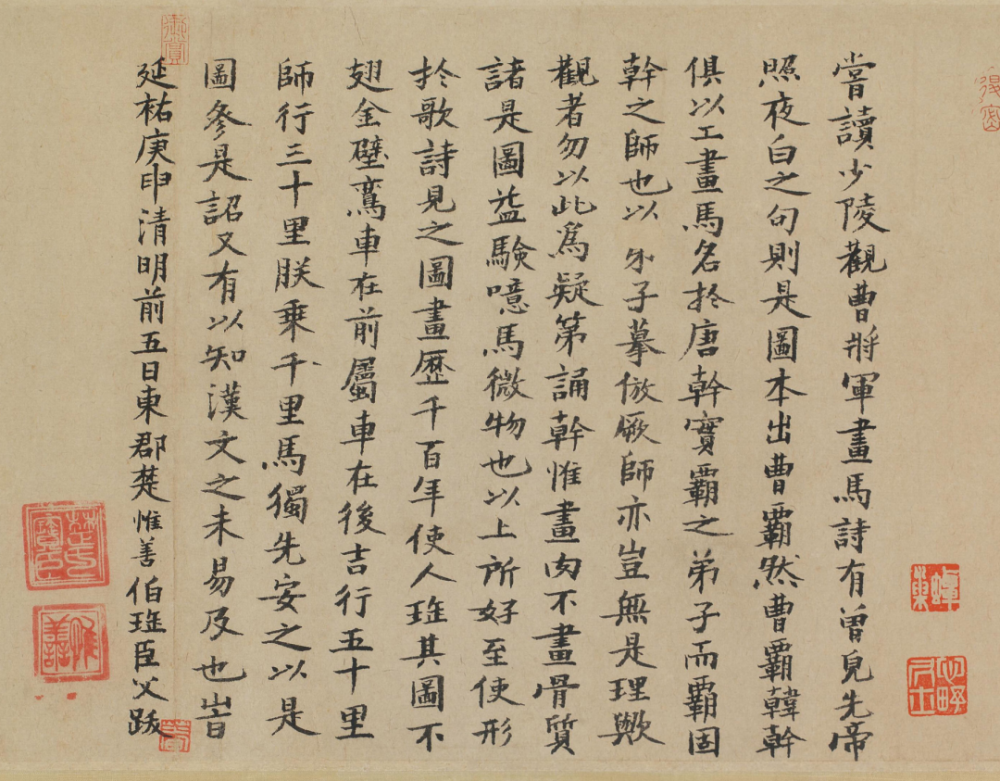 嘗讀少陵觀曹將軍畫馬詩有曾見先帝
照夜白之句則是圖本出曹霸然曹霸韓幹
俱以工畫馬名扵唐幹實霸之弟子而霸固
幹之師也以弟子摹倣厥師亦豈無是理歟
觀者勿以此為疑第誦幹惟畫肉不畫骨質
諸是圖益驗噫馬微物也以上所好至使形
扵歌詩見之圖畫歷千百年使人珎其圖不
翅金璧鸞車在前屬車在後吉行五十里
師行三十里朕乘千里馬獨先安之以是
圖參是詔又有以知漢文之未易及也旹
延祐庚申清明前五日東郡楚惟善伯珎臣父跋
楚氏
惟善